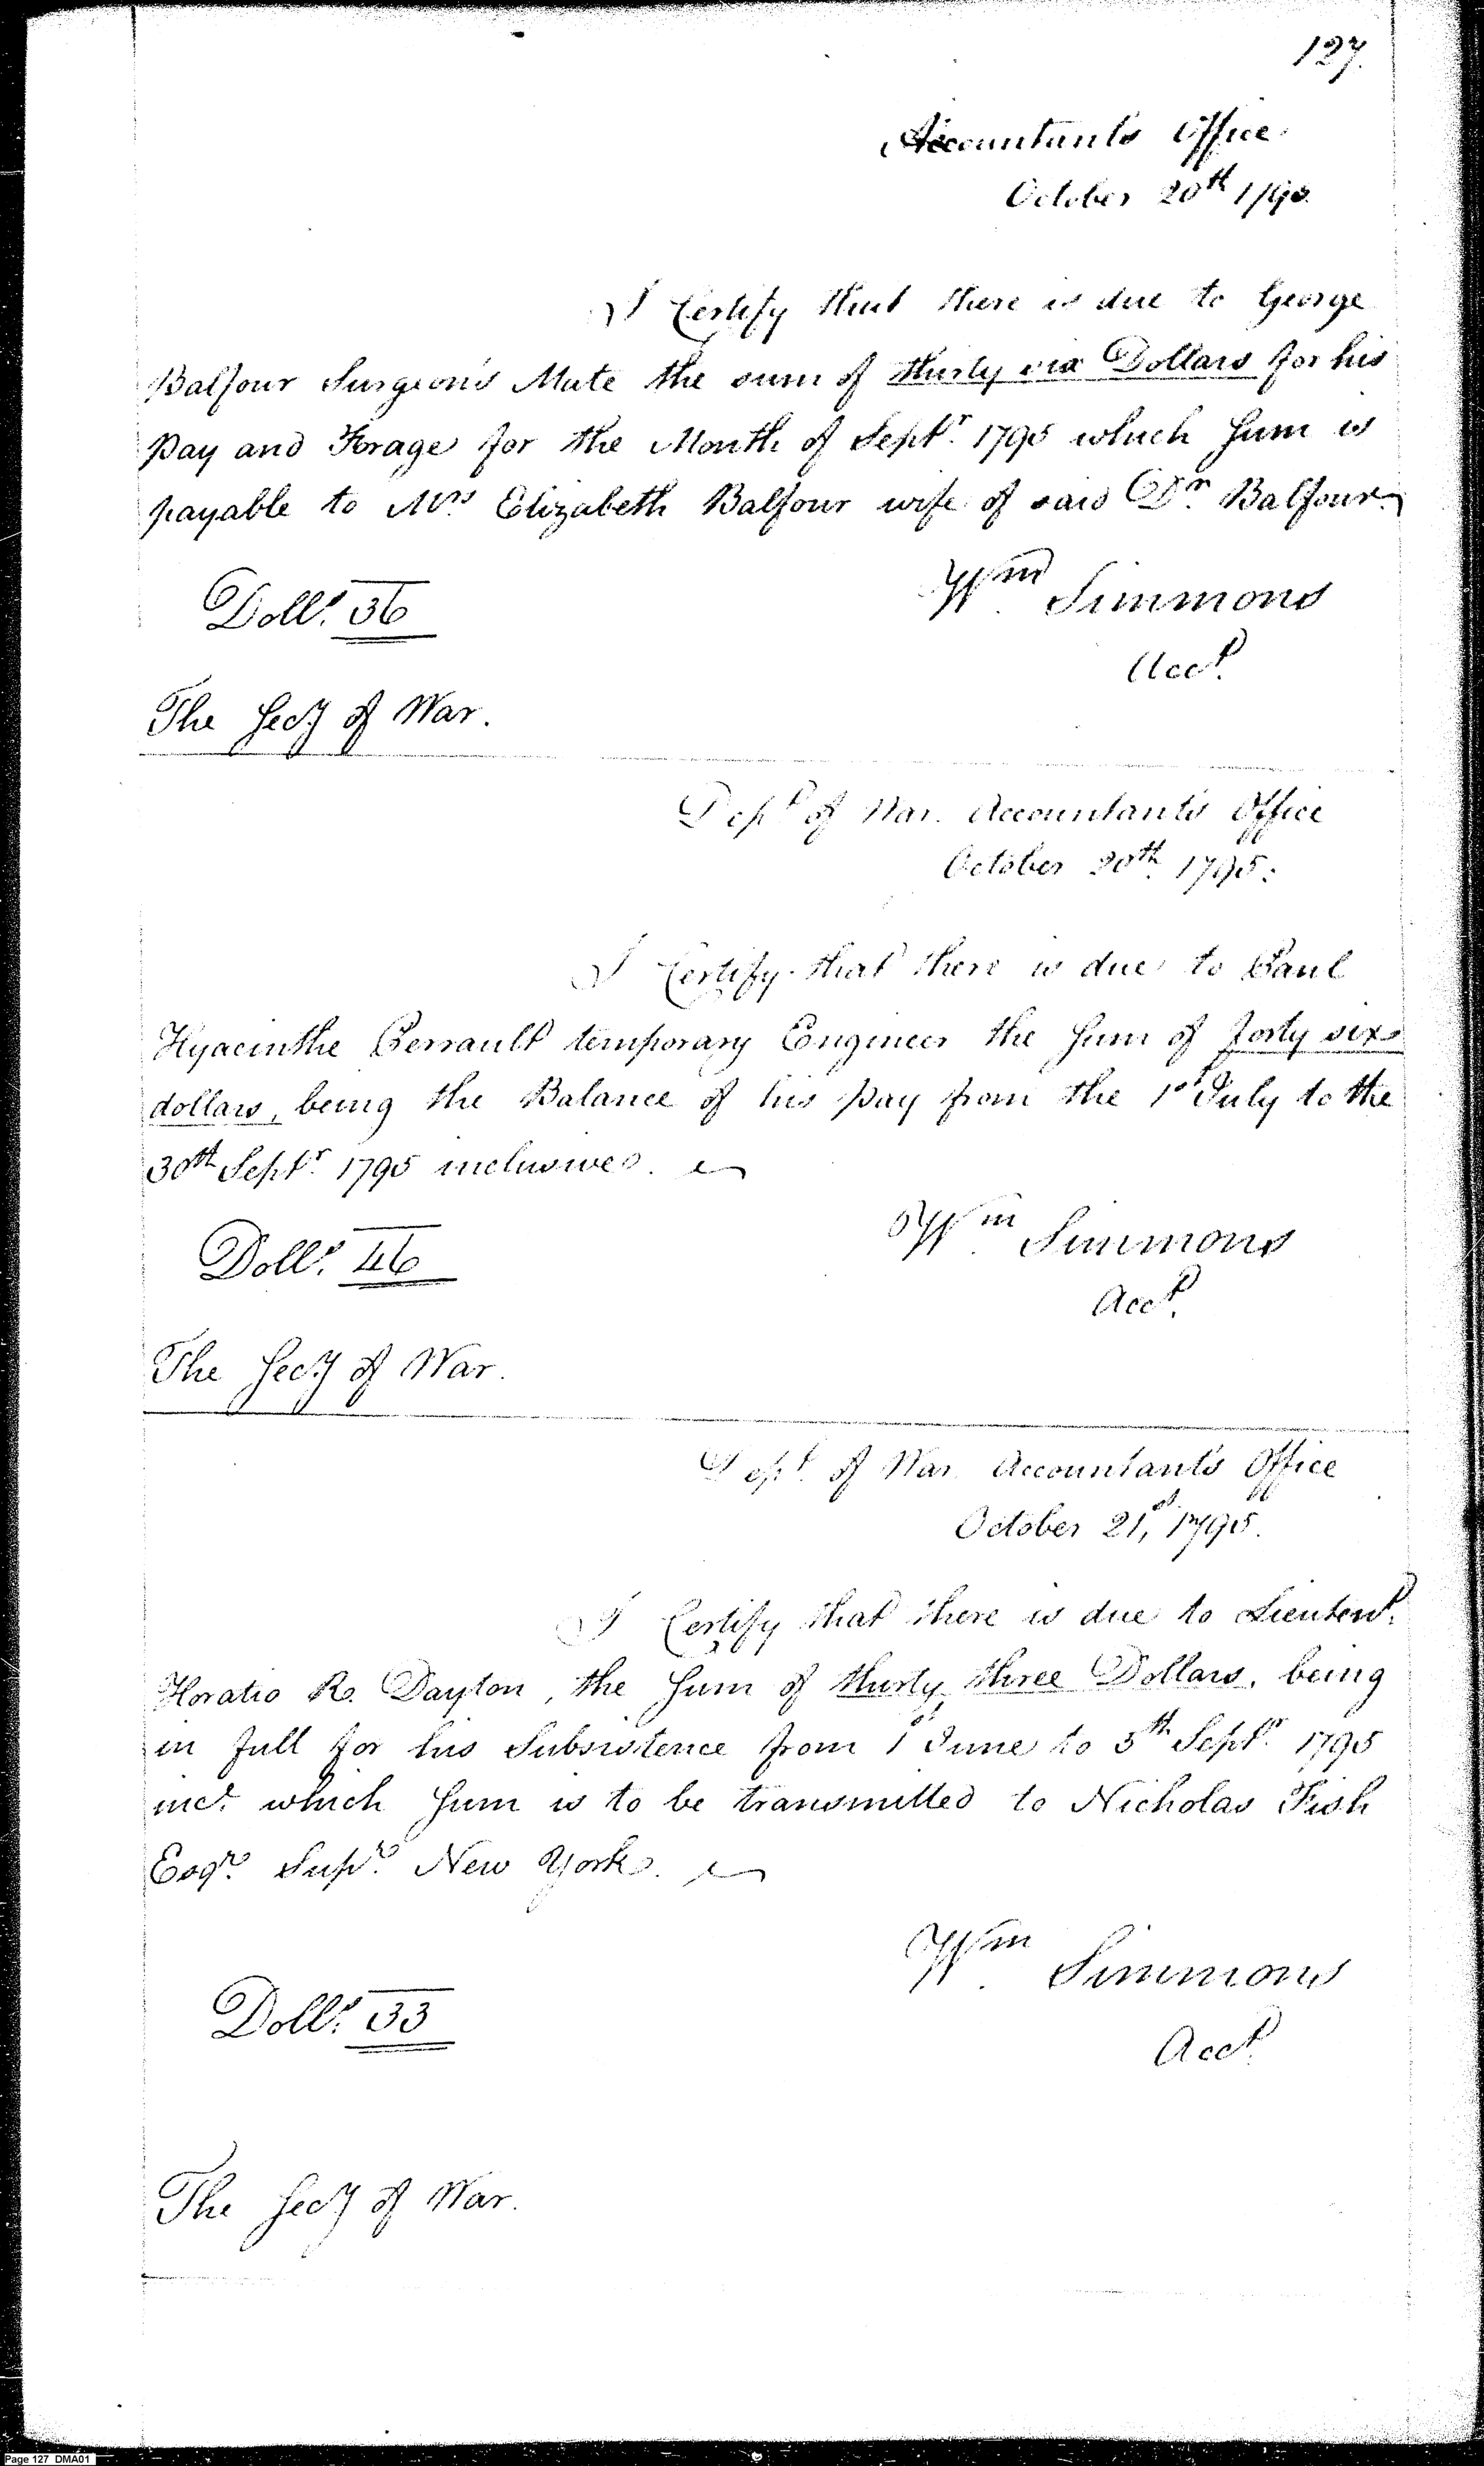 127.
Accountant's Office
October 20th 1795.
I Certify that there is due to George
Balfour Surgeon's Mate the sum of thirty six Dollars for his
pay and Forage for the Month of Septr. 1795 which Sum is
payable to Mrs. Elizabeth Balfour wife of said Dr. Balfour.
Wm. Simmons
Dolls. 36
Acct.
The Secy of War.
Dept of War. Accountant's Office
October 20th 1795.
I Certify that there is due to Paul
Hyacinthe Perrault temporary Engineer the Sum of forty six
dollars, being the Balance of his pay from the 1st July to the
30th Septr. 1795 inclusive.
Wm. Simmons
Dolls. 46
Acct.
The Secy of War.
Dept. of War Accountant's Office
October 21st, 1795.
I Certify that there is due to Lieutent.
Horatio R. Dayton, the Sum of thirty three Dollars, being
in full for his Subsistence from 1st June to 5th Septr. 1795
inc. which Sum is to be transmitted to Nicholas Fish
Esqr. Supr. New York.
Wm. Simmons
Dolls. 33
Acct.
The Secy of War.
Page 127 DMA01